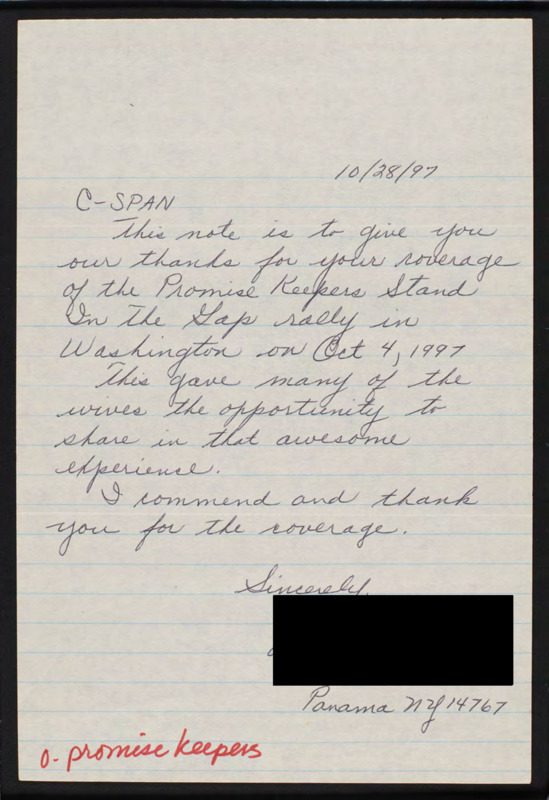 10/28/97
C-SPAN
This note is to give you
our thanks for your coverage
of the Promise Keepers Stand
In The Gap rally in
Washington on Oct 4, 1997
This gave many of the
wives the opportunity to
share in that awesome
experience.
I commend and thank
you for the coverage.
Sincerely,
Panama NY 14767
o- promise keepers